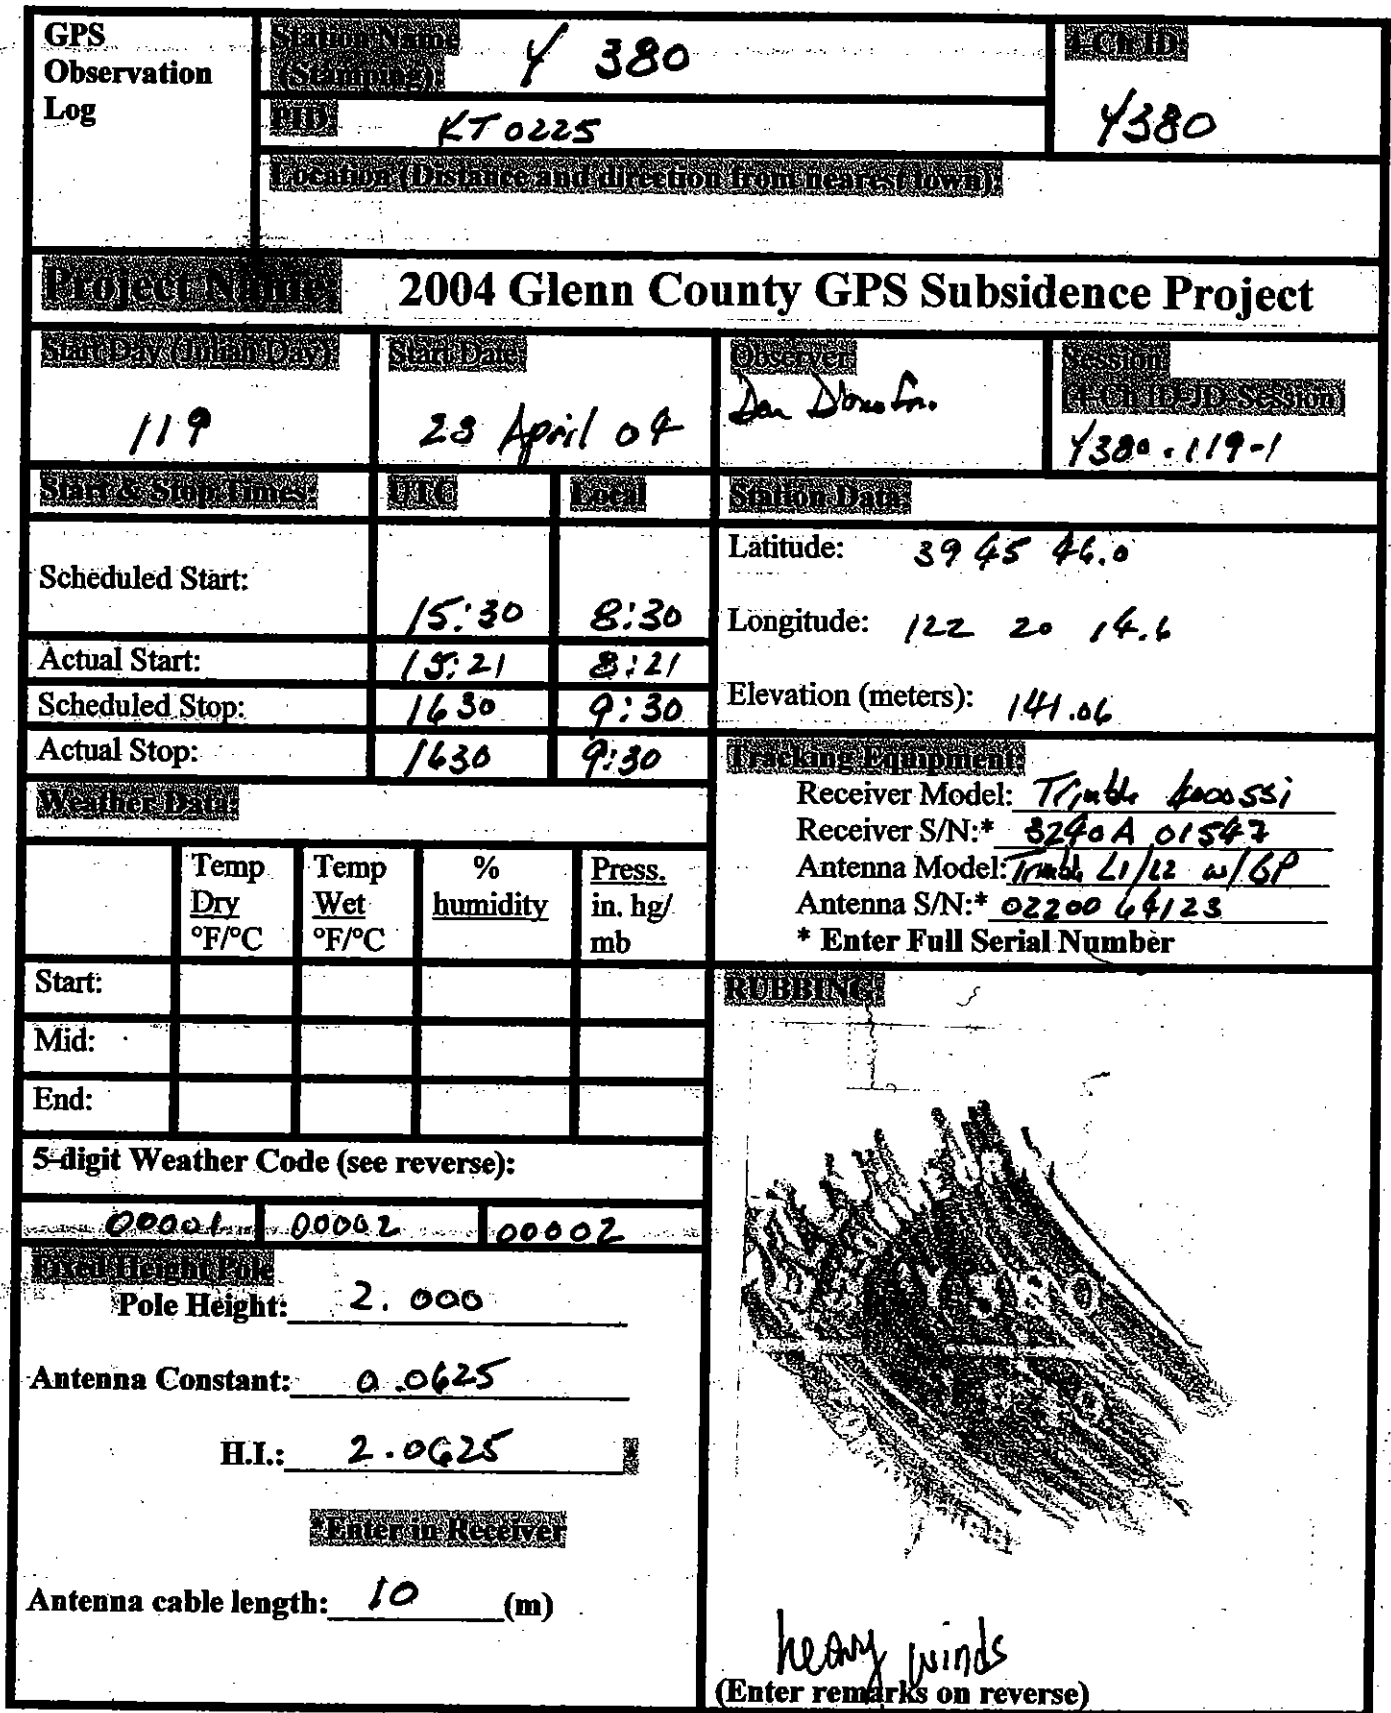 GPS
Observation
Log
Station Name
(Stamping):
Y 380
4-Ch ID:
Y380
PID:
KT0225
Location (Distance and direction from nearest town):
Project Name: 2004 Glenn County GPS Subsidence Project
Start Day (Julian Day)
119
Start Date:
28 April 04
Observer
Dan
Session
(4-Ch ID-JD-Session)
Y380-119-1
Start & Stop Times: UTC Local
Scheduled Start: 15:30 8:30
Actual Start: 15:21 8:21
Scheduled Stop: 1630 9:30
Actual Stop: 1630 9:30
Station Data:
Latitude: 39 45 46.0
Longitude: 122 20 14.6
Elevation (meters): 141.06
Tracking Equipment:
Receiver Model: Trimble 4000 SSi
Receiver S/N:* 3240A 01547
Antenna Model: Trimble L1/L2 w/GP
Antenna S/N:* 02200 64123
* Enter Full Serial Number
Weather Data:
Temp
Dry
°F/°C
Temp
Wet
°F/°C
%
humidity
Press.
in. hg/
mb
Start:
Mid:
End:
5-digit Weather Code (see reverse):
00001 00002 00002
Fixed Height Pole
Pole Height: 2.000
Antenna Constant: 0.0625
H.I.: 2.0625 *
*Enter in Receiver
Antenna cable length: 10 (m)
RUBBING:
Y 380
heavy winds
(Enter remarks on reverse)